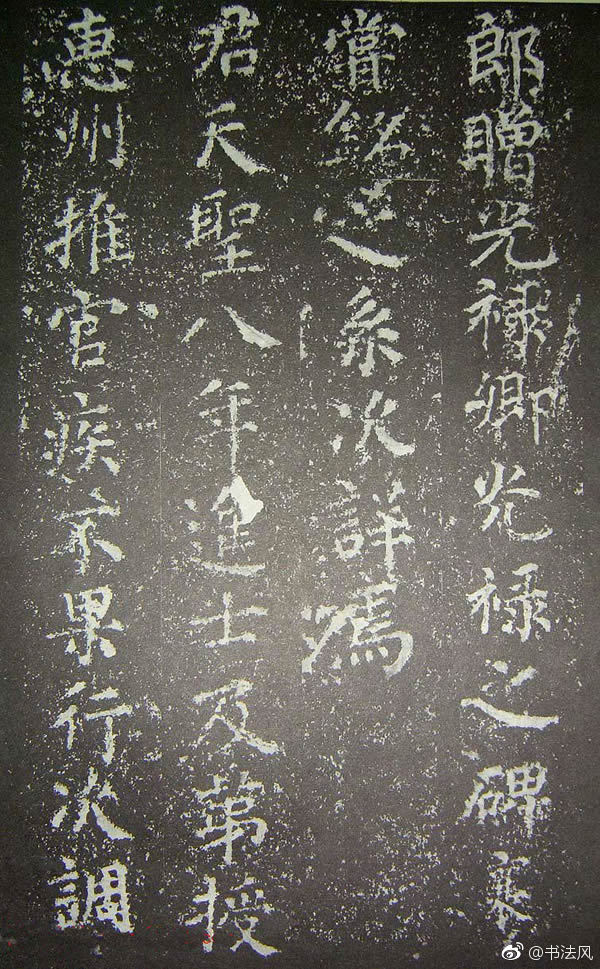 郎贈光祿卿光祿之碑襄
嘗銘之系次詳焉
君天聖八年進士及第授
惠州推官疾不果行次調
@书法风